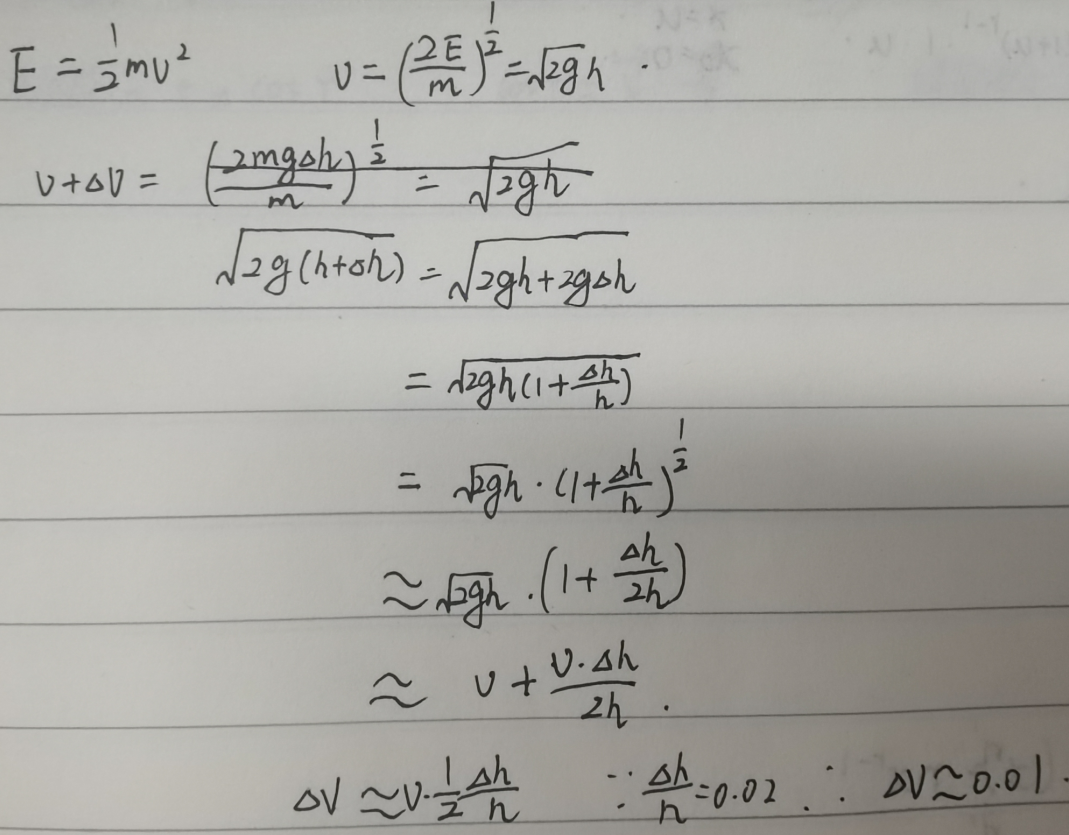 E = ½mv² v = (2E/m)^½ = √2gh .
v+Δv = (2mgΔh/m)^½ = √2gh
√2g(h+Δh) = √2gh+2gΔh
= √2gh(1+Δh/h)
= √2gh · (1+Δh/h)^½
≈ √2gh · (1+Δh/2h)
≈ v + v·Δh/2h .
Δv ≈ v·½ Δh/h ∵ Δh/h = 0.02 ∴ Δv ≈ 0.01 .